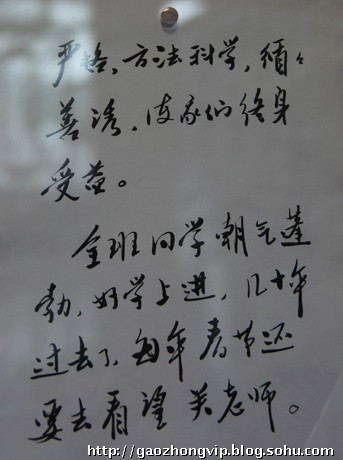 严格，方法科学，循々
善诱，使我们终身
受益。
全班同学朝气蓬
勃，好学上进，几十年
过去了，每年春节还
要去看望关老师。
http://gaozhongvip.blog.sohu.com